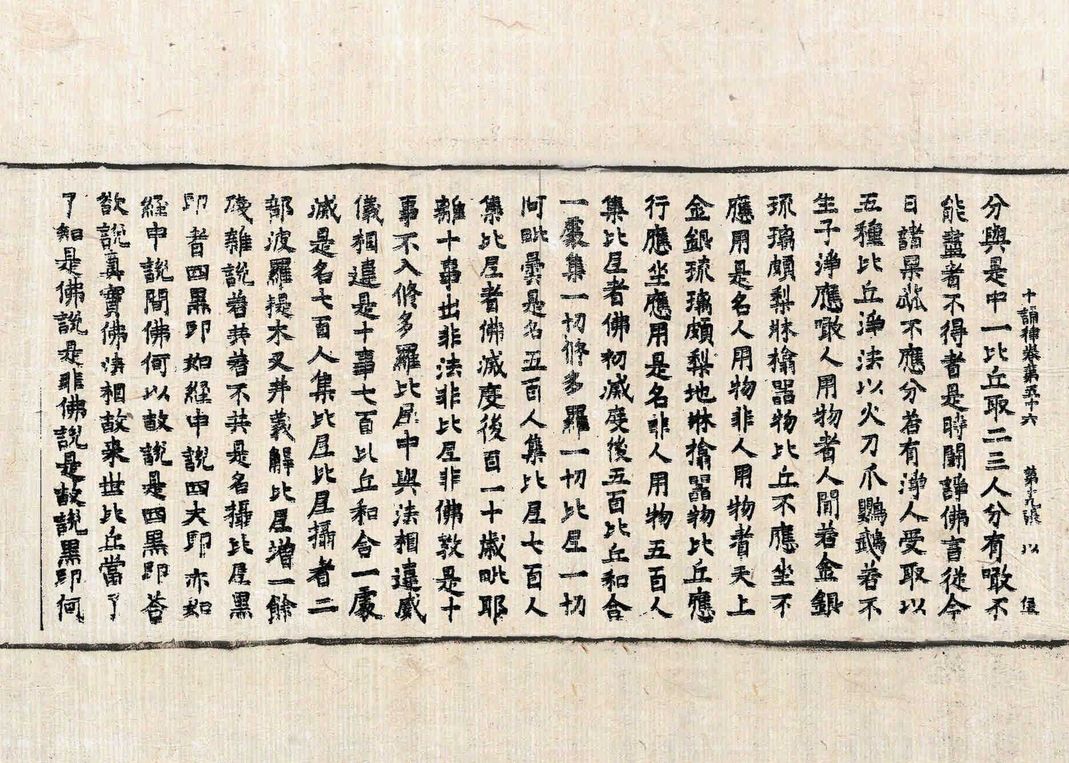 分與是中一比丘取二三人分有噉不
十誦律卷第五十六 第九張 以
能盡者不得者是時鬪諍佛言從今
日諸果蓏不應分若有淨人受取以
五種比丘淨法以火刀爪鸚鵡若不
生子淨應噉人用物者人間若金銀
琉璃頗梨牀榻器物比丘不應坐不
應用是名人用物非人用物者天上
金銀琉璃頗梨地牀榻器物比丘應
行應坐應用是名非人用物五百人
集比尼者佛初滅度後五百比丘和合
一處集一切修多羅一切比尼一切
阿毗曇是名五百人集比尼七百人
集比尼者佛滅度後百一十歲毗耶
離十事出非法非比尼非佛教是十
事不入修多羅比尼中與法相違威
儀相違是十事七百比丘和合一處
滅是名七百人集比尼比尼攝者二
部波羅提木叉并義解比尼增一餘
殘雜說若共若不共是名攝比尼黑
印者四黑印如經中說四大印亦如
經中說問佛何以故說是四黑印荅
欲說真實佛法相故来世比丘當了
了知是佛說是非佛說是故說黑印何